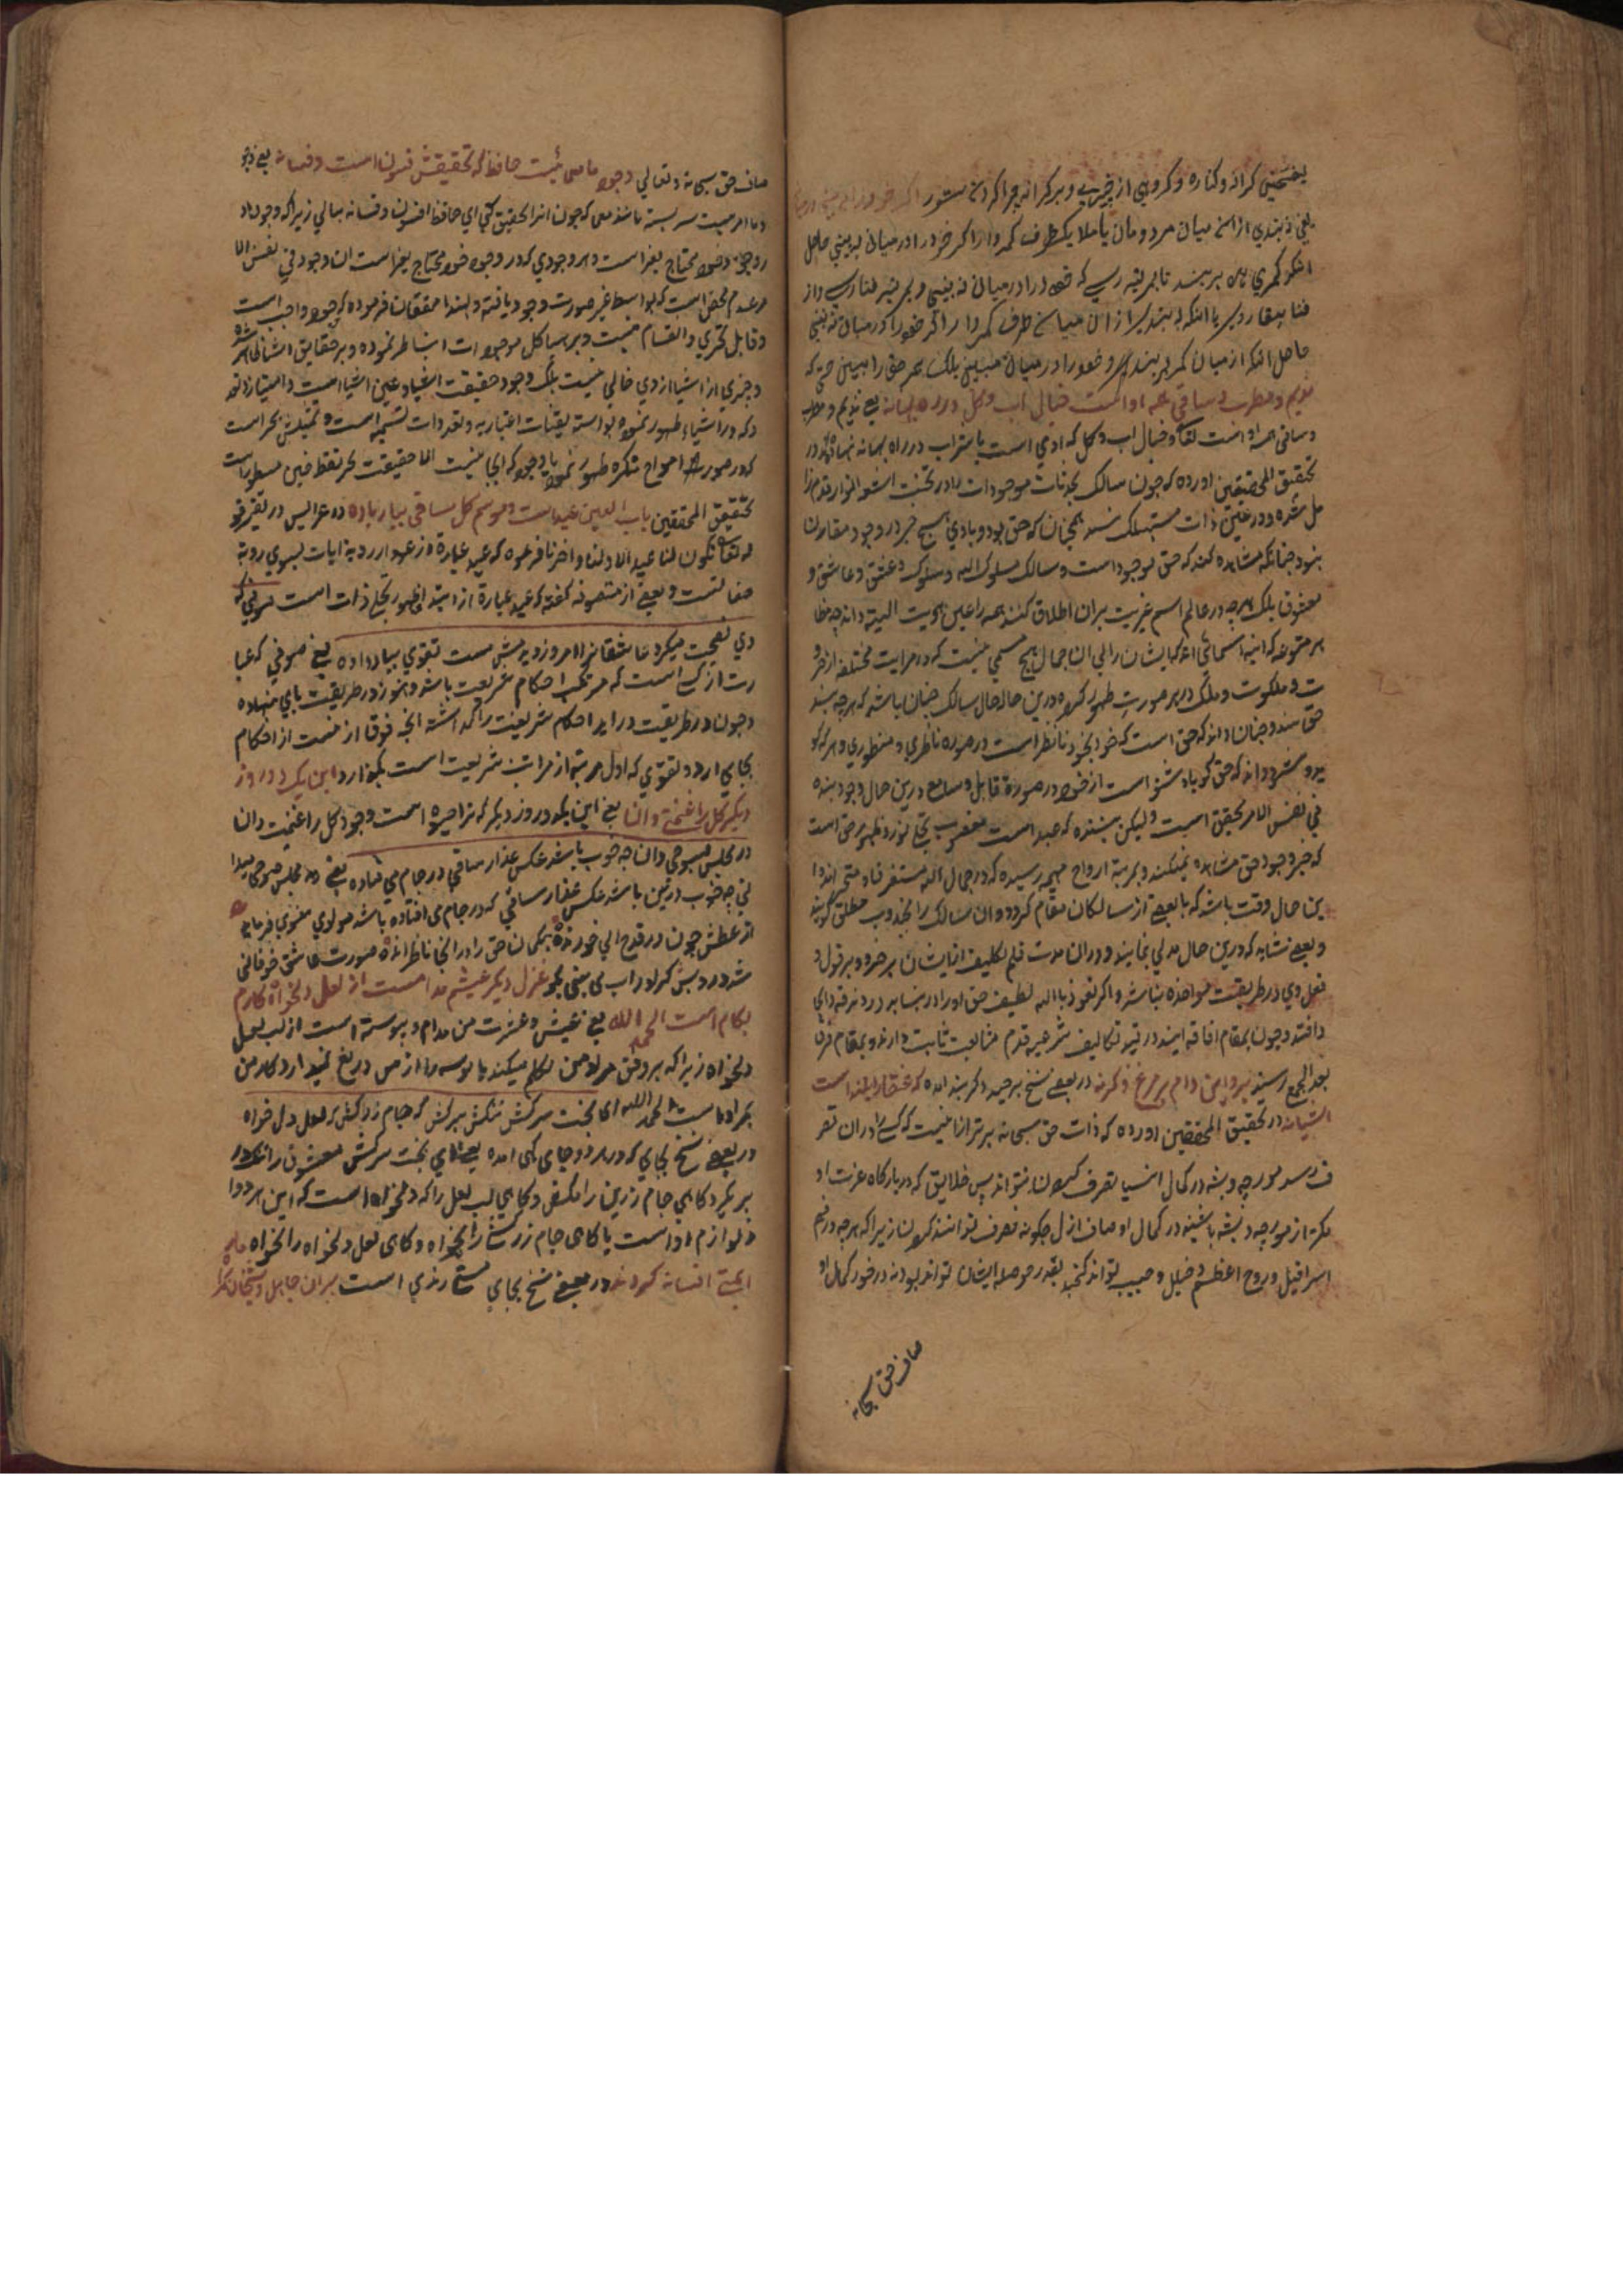 بفتحتین کرانه و کناره و کروهی از چیزی و بر کرانه چرا کردن ستور اگر خود را نه بینی در میان
یعنی نه بندی از آن میان مرد و مان یا ملا یکطرف کمر وار اگر خود را در میان نه بینی حاصل
انکه کمری به بر بند تا بمرتبه رسی که خود را در میان نه بینی و بمرتبه فنا رسی و از
فنا ببقا رسی یا انکه نه بندی از ان میان طرف کمر وار اگر خود را در میان نه بینی
حاصل انکه از میان کمر بر بند و خود را در میان مبین بلکه همه حق را ببین حتی که
ندیم و مطرب و ساقی همه اوست خیال اب و کل در ره بهانه یعنی ندیم و مطرب
و ساقی همه اوست و خیال اب و کل که ادمی است باشراب در راه بهانه نهاده در
تحقیق المحققین اورده که چون سالک تعینات موجودات را در تحت اشعه انوار قدم زا
مل شده و در عین ذات مستهلک شد همچنان که حق بود و با وی هیچ چیز در وجود مقارن
نبود چنانکه مشاهده کند که حق موجود است و سالک مسلوک الیه و سلوک و عشق و عاشق و
معشوق بلکه هر چه در عالم اسم غیریت بران اطلاق کنند همه را عین هویت الهیه داند چه خطا
بر متنوعه که ائینه اسمائی اند که ایشان را لی ان جمال هیچ مسمی نیست که در مرایت مختلفه از جبرو
ت و ملکوت و ملک در هر صورت ظهور کرده درین حال حال سالک چنان باشد که هر چه بیند
حق بیند و چنان داند که حق است که خود بخود ناظر است در صورت ناظری و منظوری و هر که کو
ید و شنود داند که حق گویا و شنوا است از خود در صورة قابل و سامع درین حال وجود بنده
فی نفس الامر تحقیق است ولیکن بیننده که عبد است مغلوب تجلی نور و ظهور حق است
که جز وجود حق مشاهده نمیکند و بمرتبه ارواح مهیمه رسیده که در جمال اله مستغرق و متحیر اند و ا
ین حال وقت باشد که با بعضی از سالکان مقام کردد و ان سالک را مجذوب مطلق گویند
و بعضی نشاید که درین حال مدتی بمانند و دران مدت قلم تکلیف از ایشان برخیزد و بر قول و
فعل وی در طریقت مواخذه نباشد و اگر نعوذ بالله لطیف حق او را در نیابد در زندقه دائمی
افتد و چون بمقام افاقه ایند در قید تکالیف شرعیه قدم متابعت ثابت دارند و بمقام فرق
بعد الجمع رسند برو این دام بر مرغ دگر نه در بعضی نسخ بر صید دکر بند امده که عنقا را بلند است
اشیانه در تحقیق المحققین اورده که ذات حق سبحانه برتر ازانیست که کسی را دران تصر
ف رسد مورچه و پشه در کمال انسیا تصرف کردن نتواند پس خلایق که در بارگاه عزت او
کمتر از مورچه و پشه باشند در کمال اوصاف ازل چگونه تصرف توانند کردن زیرا که هر چه در فهم
اسرافیل و روح اعظم و خلیل و حبیب تواند گنجید بقدر حوصله ایشان تواند بود نه در خور کمال او
صاف حق سبحانه
صاف حق سبحانه و تعالی وجود ما معمائیست حافظ که تحقیقش فسون است و فسانه یعنی وجو
د ما امریست سر بسته مانند معمی که چون انرا تحقیق کنی ای حافظ افسون و فسانه بیابی زیرا که وجود ما د
ر وجود خود محتاج بغیر است و هر وجودی که در وجود خود محتاج بغیر است ان وجود فی نفس الا
مر عدم محض است که بواسطه غیر صورت وجود یافته و لهذا محققان فرموده که وجود واجب است
و قابل تجزی و انقسام نیست و بر هیاکل موجودات انبساط نموده و بر حقایق اشیا ظاهر شده
و چیزی از اشیا از وی خالی نیست بلکه وجود حقیقت اشیا و عین اشیا است و امتیاز و تعد
د که در اشیاء ظهور نموده بواسطه تعینات اعتباریه و تعددات نسبیه است و تمثیلش بحر است
که در صورت امواج متکثره ظهور نمود با وجود که انجا نیست الا حقیقت بحر فقط فهمن مسطور است
تحقیق المحققین باب العین عید است و موسم کل ساقی بیار باده در عرایس در تفسیر قو
له تعالی تکون لنا عیدا لاولنا و اخرنا فرموده که عید عبارة از عود ارد به ایات بسوی رویة
صفاتست و بعضی از متصوفه گفته که عید عبارة از ابتدای ظهور تجلی ذات است صوفی که
دی نصیحت میکرد عاشقانرا امروز دیدمش مست تقوی بباد داده یعنی صوفی که عبا
رت از کسی است که مرتکب احکام شریعت باشد و هنوز در طریقت پای ننهاده
و چون در طریقت در اید احکام شریعت را گذاشته انچه فوق ازینست از احکام
بجای ارد و تقوی که اول مرتبه از مراتب شریعت است بگذارد این یک دو روز
دیگر کل را غنیمت دان یعنی این یک دو روز دیگر که ترا میسر است وجود کل را غنیمت دان
در مجلس صبوحی دان چه خوب باشد عکس عذار ساقی در جام می فتاده یعنی در مجلس صبوحی میدا
نی چه خوب و رنگین باشد عکس عذار ساقی که در جام می افتاده باشد مولوی معنوی فرماید
از عطش چون در قدح ابی خورند بیگمان حق را در انجا ناظر اند صورت عاشق چو فانی
شد در دبش گر او در اب می بینی بگو غزل دیگر عیشم مدامست از لعل دلخواه کارم
بکام است الحمد لله یعنی عیش و عشرت من مدام و پیوسته است از لب لعل
دلخواه زیرا که بر وفق مراد من تکلم میکند یا بوسه را از من دریغ نمیدارد کار من
بمراد است الحمد لله ای بخت سرکش تنگش ببر کش که جام زر کش که لعل دل خواه
در بعضی نسخ بجای که در هر دو جای گهی امده یعنی ای بخت سرکش معشوق را تنگ در
بر گیر و گاهی جام زرین را میکش و گاهی لب لعل را که دلخواه است که این هر دو ا
ز لوازم او است یا گاهی جام زر کش را بخواه و گاهی لعل دلخواه را بخواه ما بر
ابمستی افسانه کردند در بعضی نسخ بجای مستی رندی است پیران جاهل و شیخان گمراه